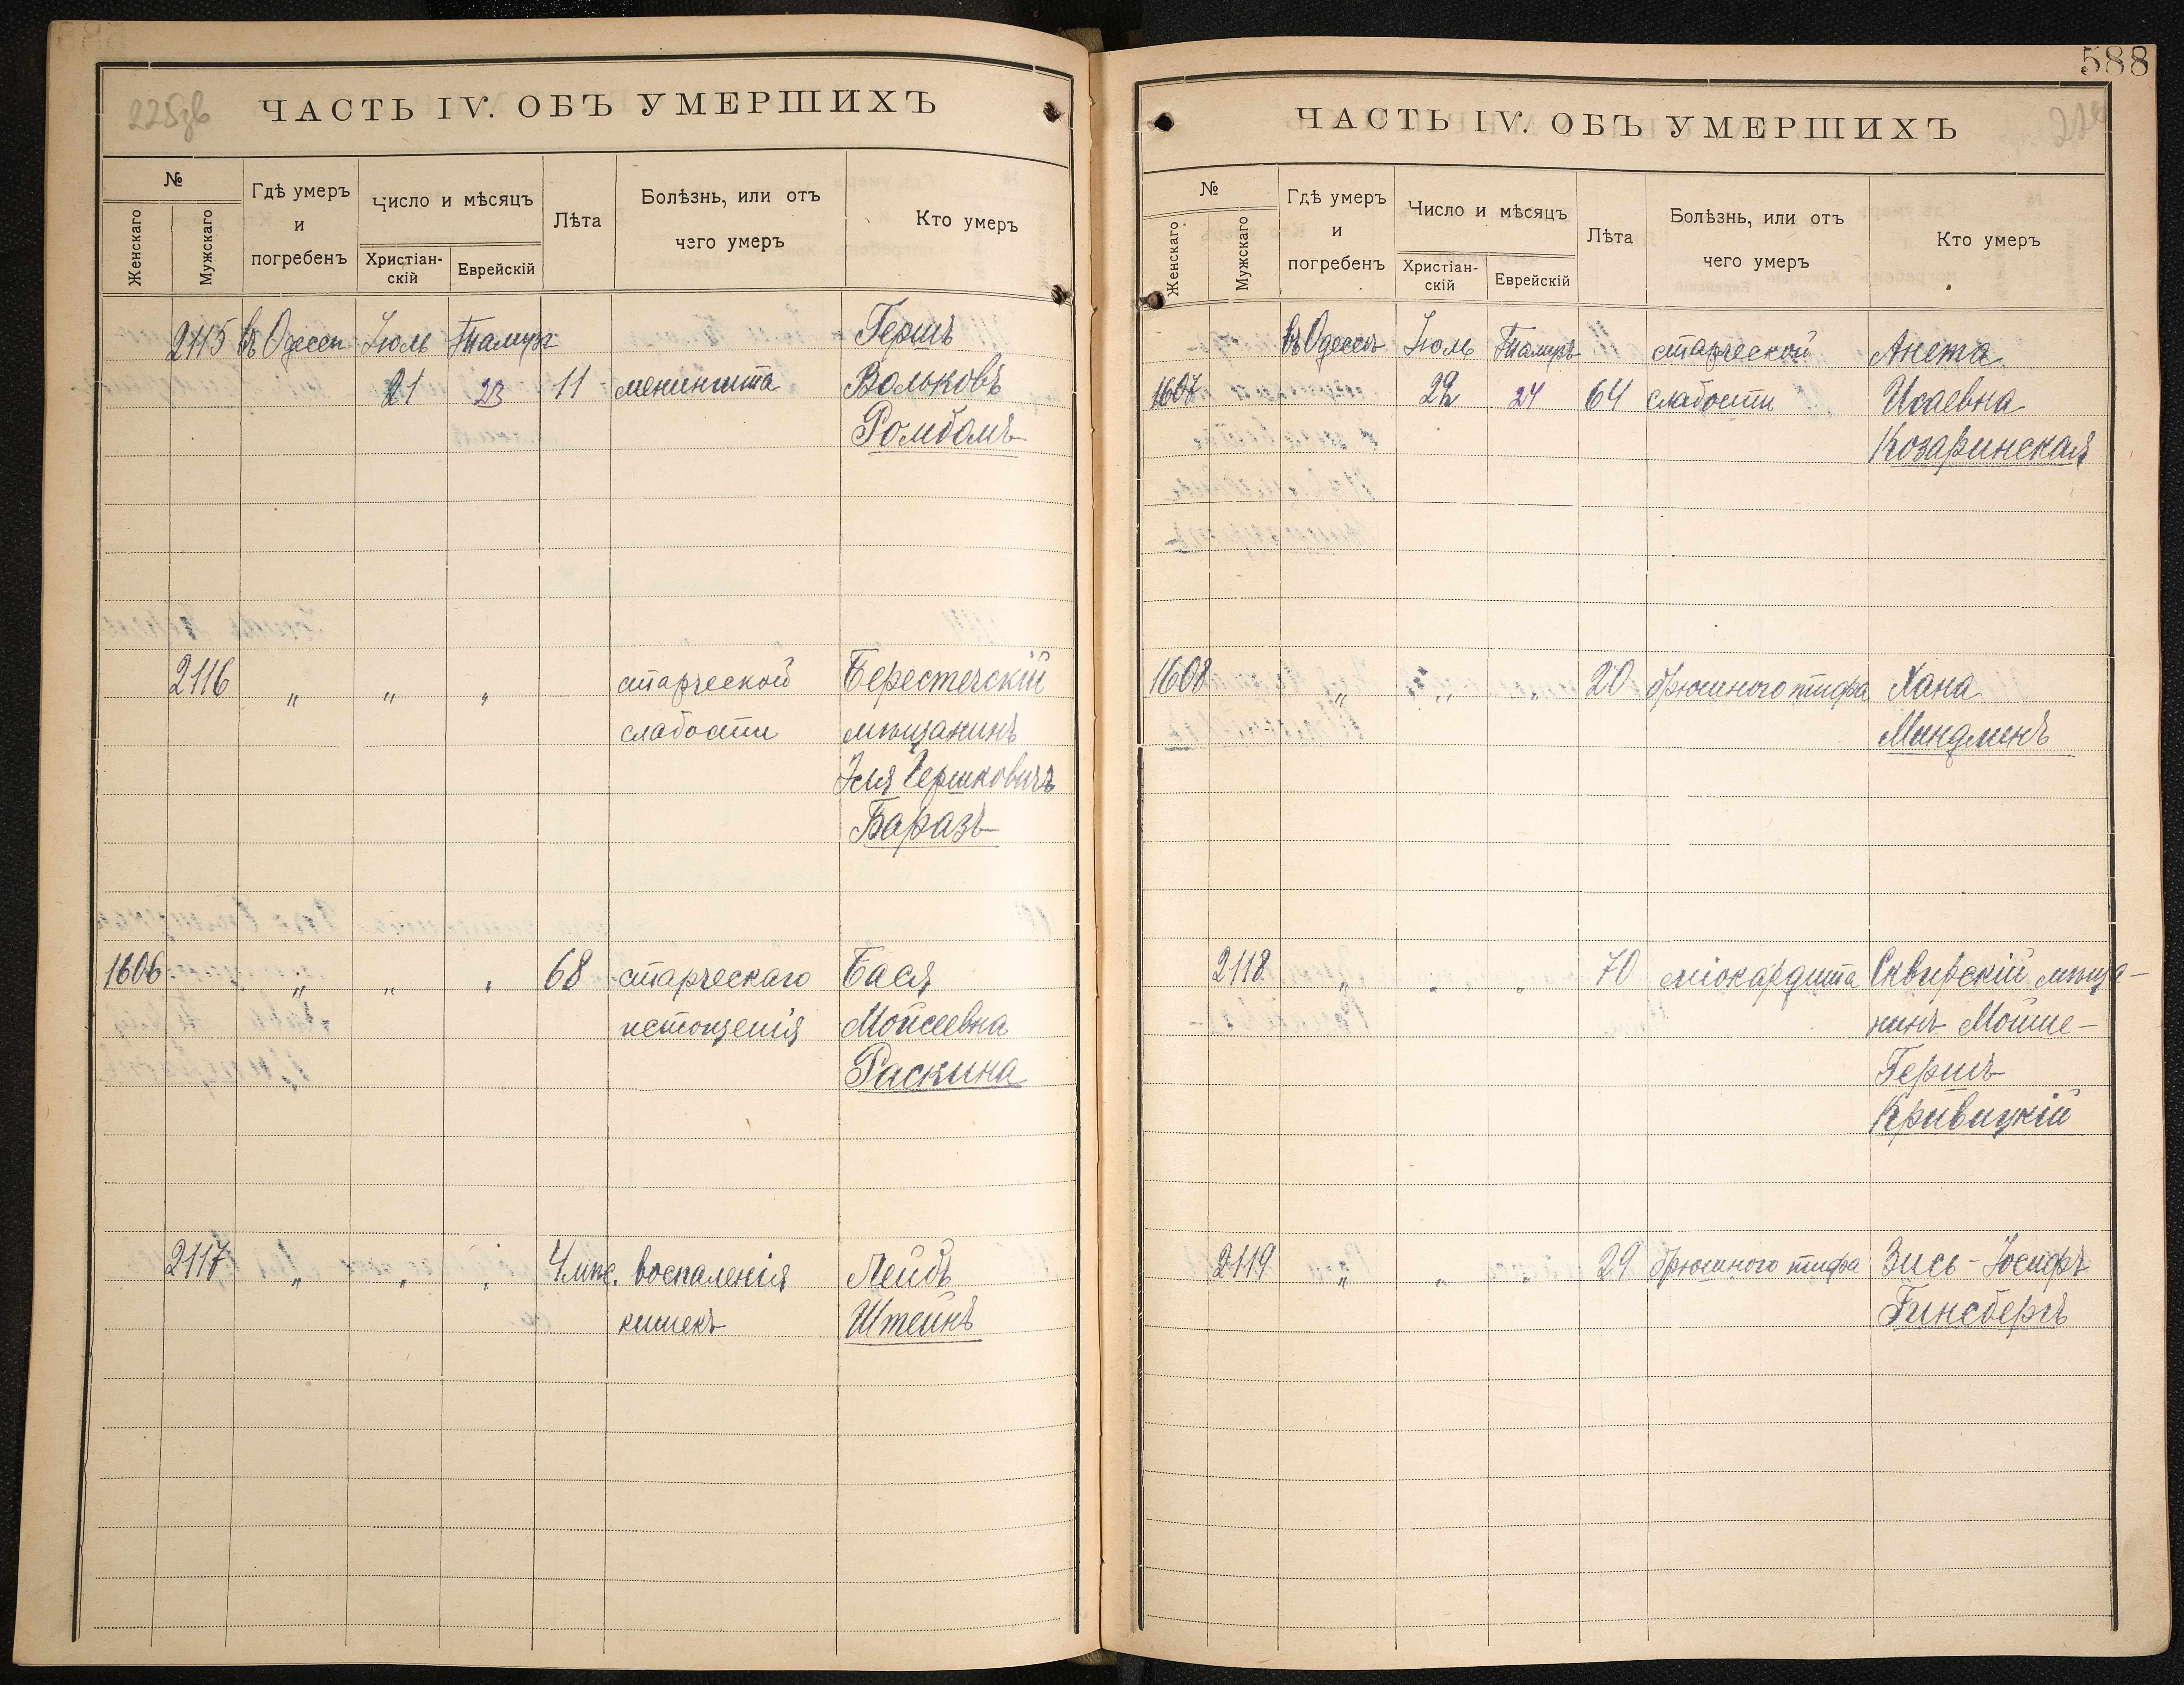 588
225зв
ЧАСТЬ IV. ОБЪ УМЕРШИХЪ
№
Женскаго
Мужскаго
Гдѣ умеръ
и
погребенъ
Число и мѣсяцъ
Христіан-
скій
Еврейскій
Лѣта
Болѣзнь, или отъ
чэго умеръ
Кто умеръ
2115 въ Одессѣ Іюль Тамузъ Гершъ
21 23 11 менингита Вольковъ
Ромбомъ
2116 „ „ „ старческой Берестечскій
слабости мѣщанинъ
Эля Гершковичъ
Баразъ
1606 „ „ „ 68 старческаго Бася
истощенія Мойсеевна
Раскина
2117 „ „ „ 4 мѣс. воспаленія Лейбъ
кишекъ Штейнъ
ЧАСТЬ IV. ОБЪ УМЕРШИХЪ
№
Женскаго
Мужскаго
Гдѣ умеръ
и
погребенъ
Число и мѣсяцъ
Христіан-
скій
Еврейскій
Лѣта
Болѣзнь, или отъ
чего умеръ
Кто умеръ
въ Одессѣ Іюль Тамузъ старческой Анета
1607 22 24 64 слабости Исаевна
Козаринская
1608 „ „ „ 20 брюшного тифа Хана
Миндлинъ
2118 „ „ „ 70 міокардита Сквирскій мѣща-
нинъ Мойше-
Гершъ
Кривицкій
2119 „ „ „ 29 брюшного тифа Зись-Іосифъ
Гинсбергъ